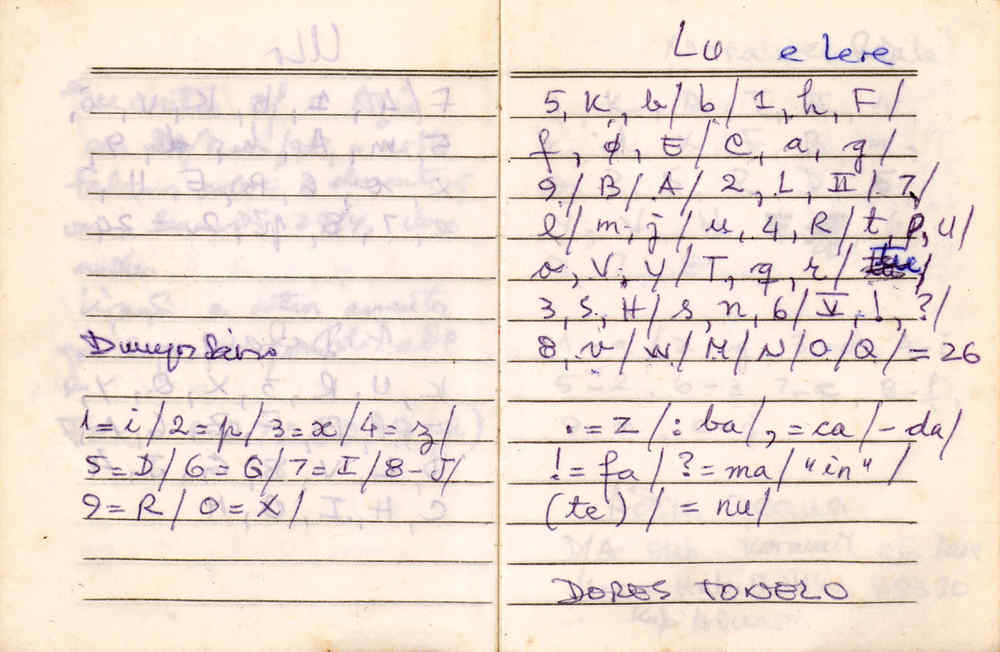 1=i/2=p/3=x/4=z/
5=D/6=G/7=I/8-J/
9=R/0=X/
Lu e Lere
5, K, b/b/1, h, F/
f, ø, E/C, a, g/
9/B/A/2, L, II/7/
l/m, j/u, 4, R/t, p, u/
a, V, y/T, q, r/
3, S, H/s, n, 6/V, !, ?/
8, v/W/M/N/O/Q/=26
.=Z/: ba/, =ca/-da/
!=fa/?=ma/"in"/
(te)/=nu/
DORES TONELO